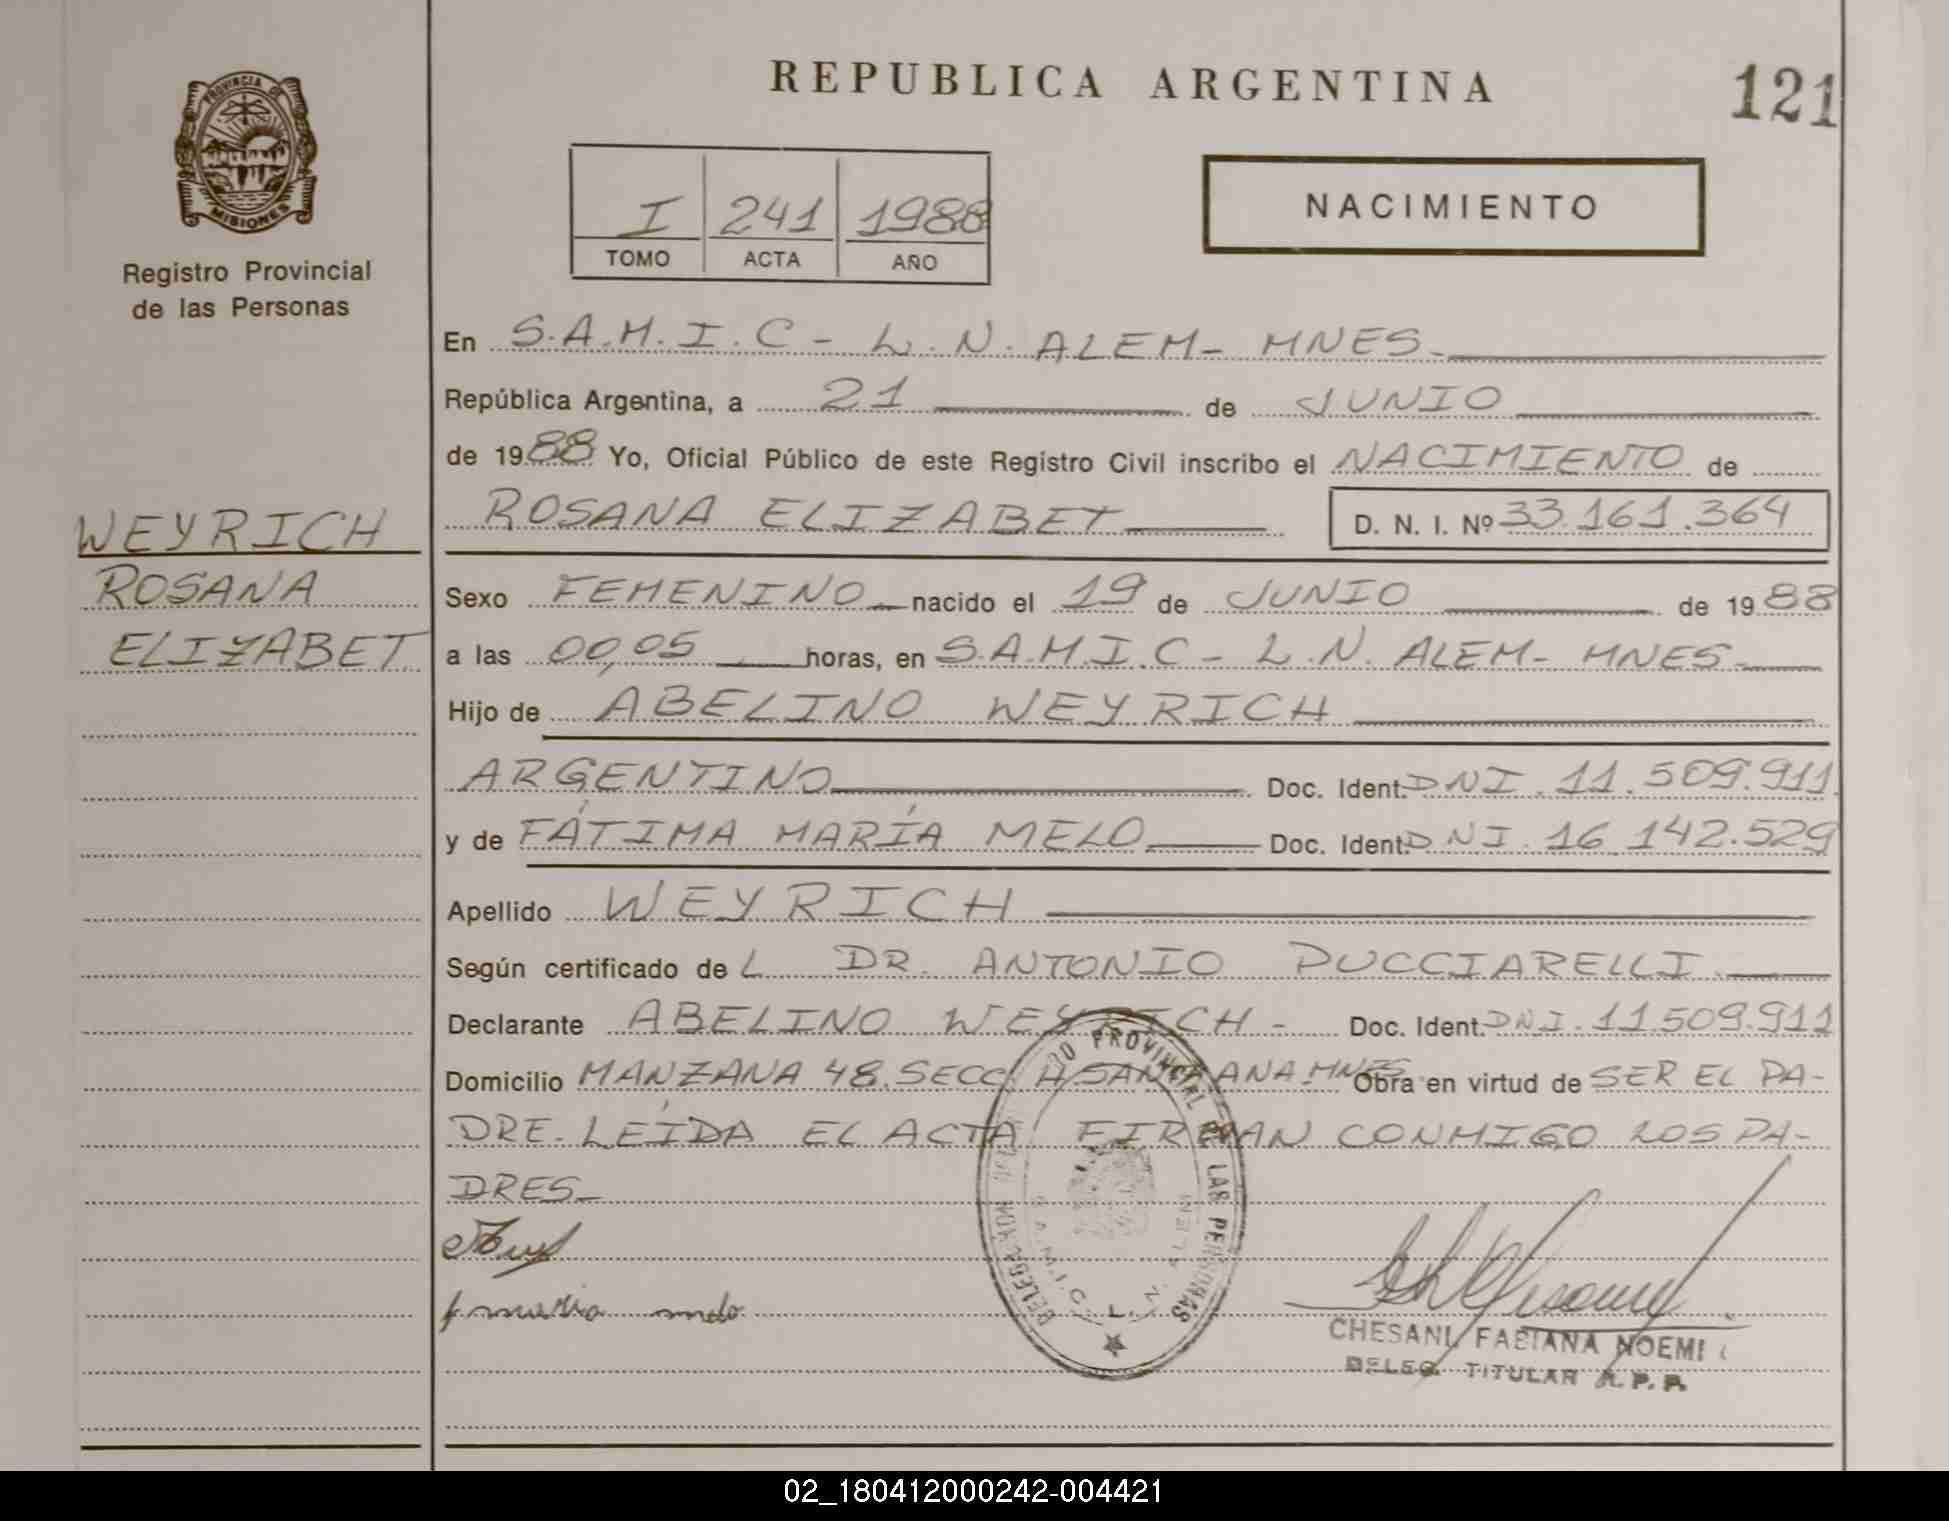 REPUBLICA ARGENTINA
121
PROVINCIA DE
MISIONES
Registro Provincial
de las Personas
I 241 1988
TOMO ACTA AÑO
NACIMIENTO
En S.A.M.I.C - L.N. ALEM - MNES.
República Argentina, a 21 de JUNIO
de 1988 Yo, Oficial Público de este Registro Civil inscribo el NACIMIENTO de
ROSANA ELIZABET D. N. I. Nº 33.161.364
WEYRICH
ROSANA
ELIZABET
Sexo FEMENINO nacido el 19 de JUNIO de 1988
a las 00,05 horas, en S.A.M.I.C - L.N. ALEM - MNES
Hijo de ABELINO WEYRICH
ARGENTINO Doc. Ident. DNI. 11.509.911
y de FÁTIMA MARÍA MELO Doc. Ident. DNI. 16.142.529
Apellido WEYRICH
Según certificado de L DR. ANTONIO PUCCIARELLI
Declarante ABELINO WEYRICH - Doc. Ident. DNI. 11.509.911
Domicilio MANZANA 48. SECC. A SANTA ANA. MNES Obra en virtud de SER EL PA-
DRE. LEÍDA EL ACTA FIRMAN CONMIGO LOS PA-
DRES
PROVINCIAL DE LAS PERSONAS
S.A.M.I.C. L. N. ALEM
CHESANI, FABIANA NOEMI
DELEG. TITULAR R. P. P.
02_180412000242-004421